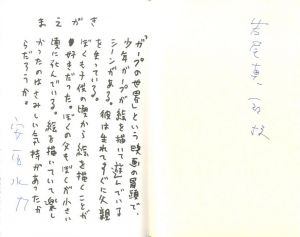 まえがき
「ガープの世界」という映画の冒頭で、
少年ガープが絵を描いて遊んでいる
シーンがある。彼は生れてすぐに父親
を失っている。
ぼくも子供の頃から絵を描くことが
好きだった。ぼくの父もぼくが小さい
頃に死んでいる。絵を描いていて楽し
かったのはさみしい気持があったか
らだろうか。
安西水丸